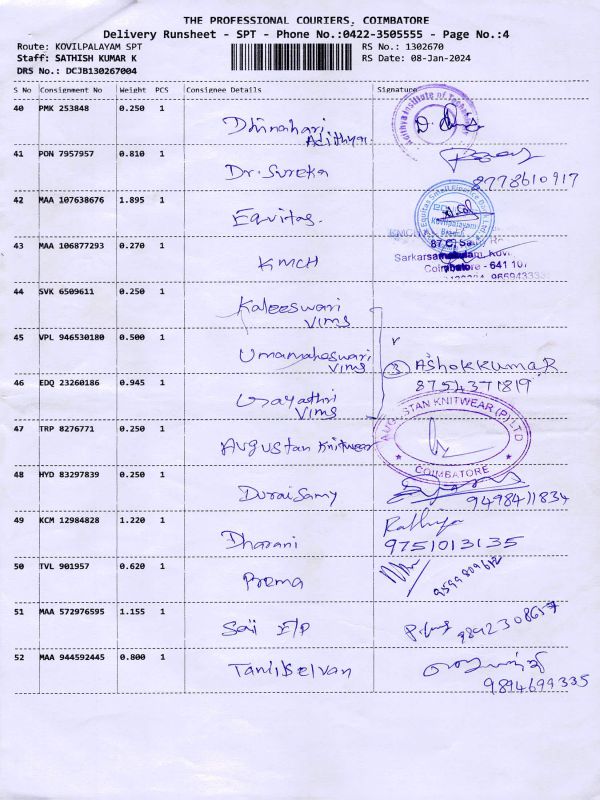 THE PROFESSIONAL COURIERS, COIMBATORE
Delivery Runsheet - SPT - Phone No.:0422-3505555 - Page No.:4
Route: KOVILPALAYAM SPT RS No.: 1302670
Staff: SATHISH KUMAR K RS Date: 08-Jan-2024
DRS No.: DCJB130267004
S No Consignment No Weight PCS Consignee Details Signature
40 PMK 253848 0.250 1
Dhinahari
Adithya
Institute of Technology
41 PON 7957957 0.810 1
Dr. Sureka
8778610917
42 MAA 107638676 1.895 1
Equitas.
Equitas Small Finance Bank Ltd
Kovilpalayam
Branch
43 MAA 106877293 0.270 1
KMCH
Coimbatore - 641 107
44 SVK 6509611 0.250 1
Kaleeswari
VIMS
45 VPL 946530180 0.500 1
Umamaheswari
VIMS
3 AshokkumaR
8754371819
46 EDQ 23260186 0.945 1
Gayathri
VIMS
47 TRP 8276771 0.250 1
Augustan Knitwear
AUGUSTAN KNITWEAR (P) LTD
COIMBATORE
48 HYD 83297839 0.250 1
Duraisamy
9498411834
49 KCM 12984828 1.220 1
Dharani
Rathiya
9751013135
50 TVL 901957 0.620 1
Prema
51 MAA 572976595 1.155 1
Sai E/P
52 MAA 944592445 0.800 1
Tamilselvan
9894699335